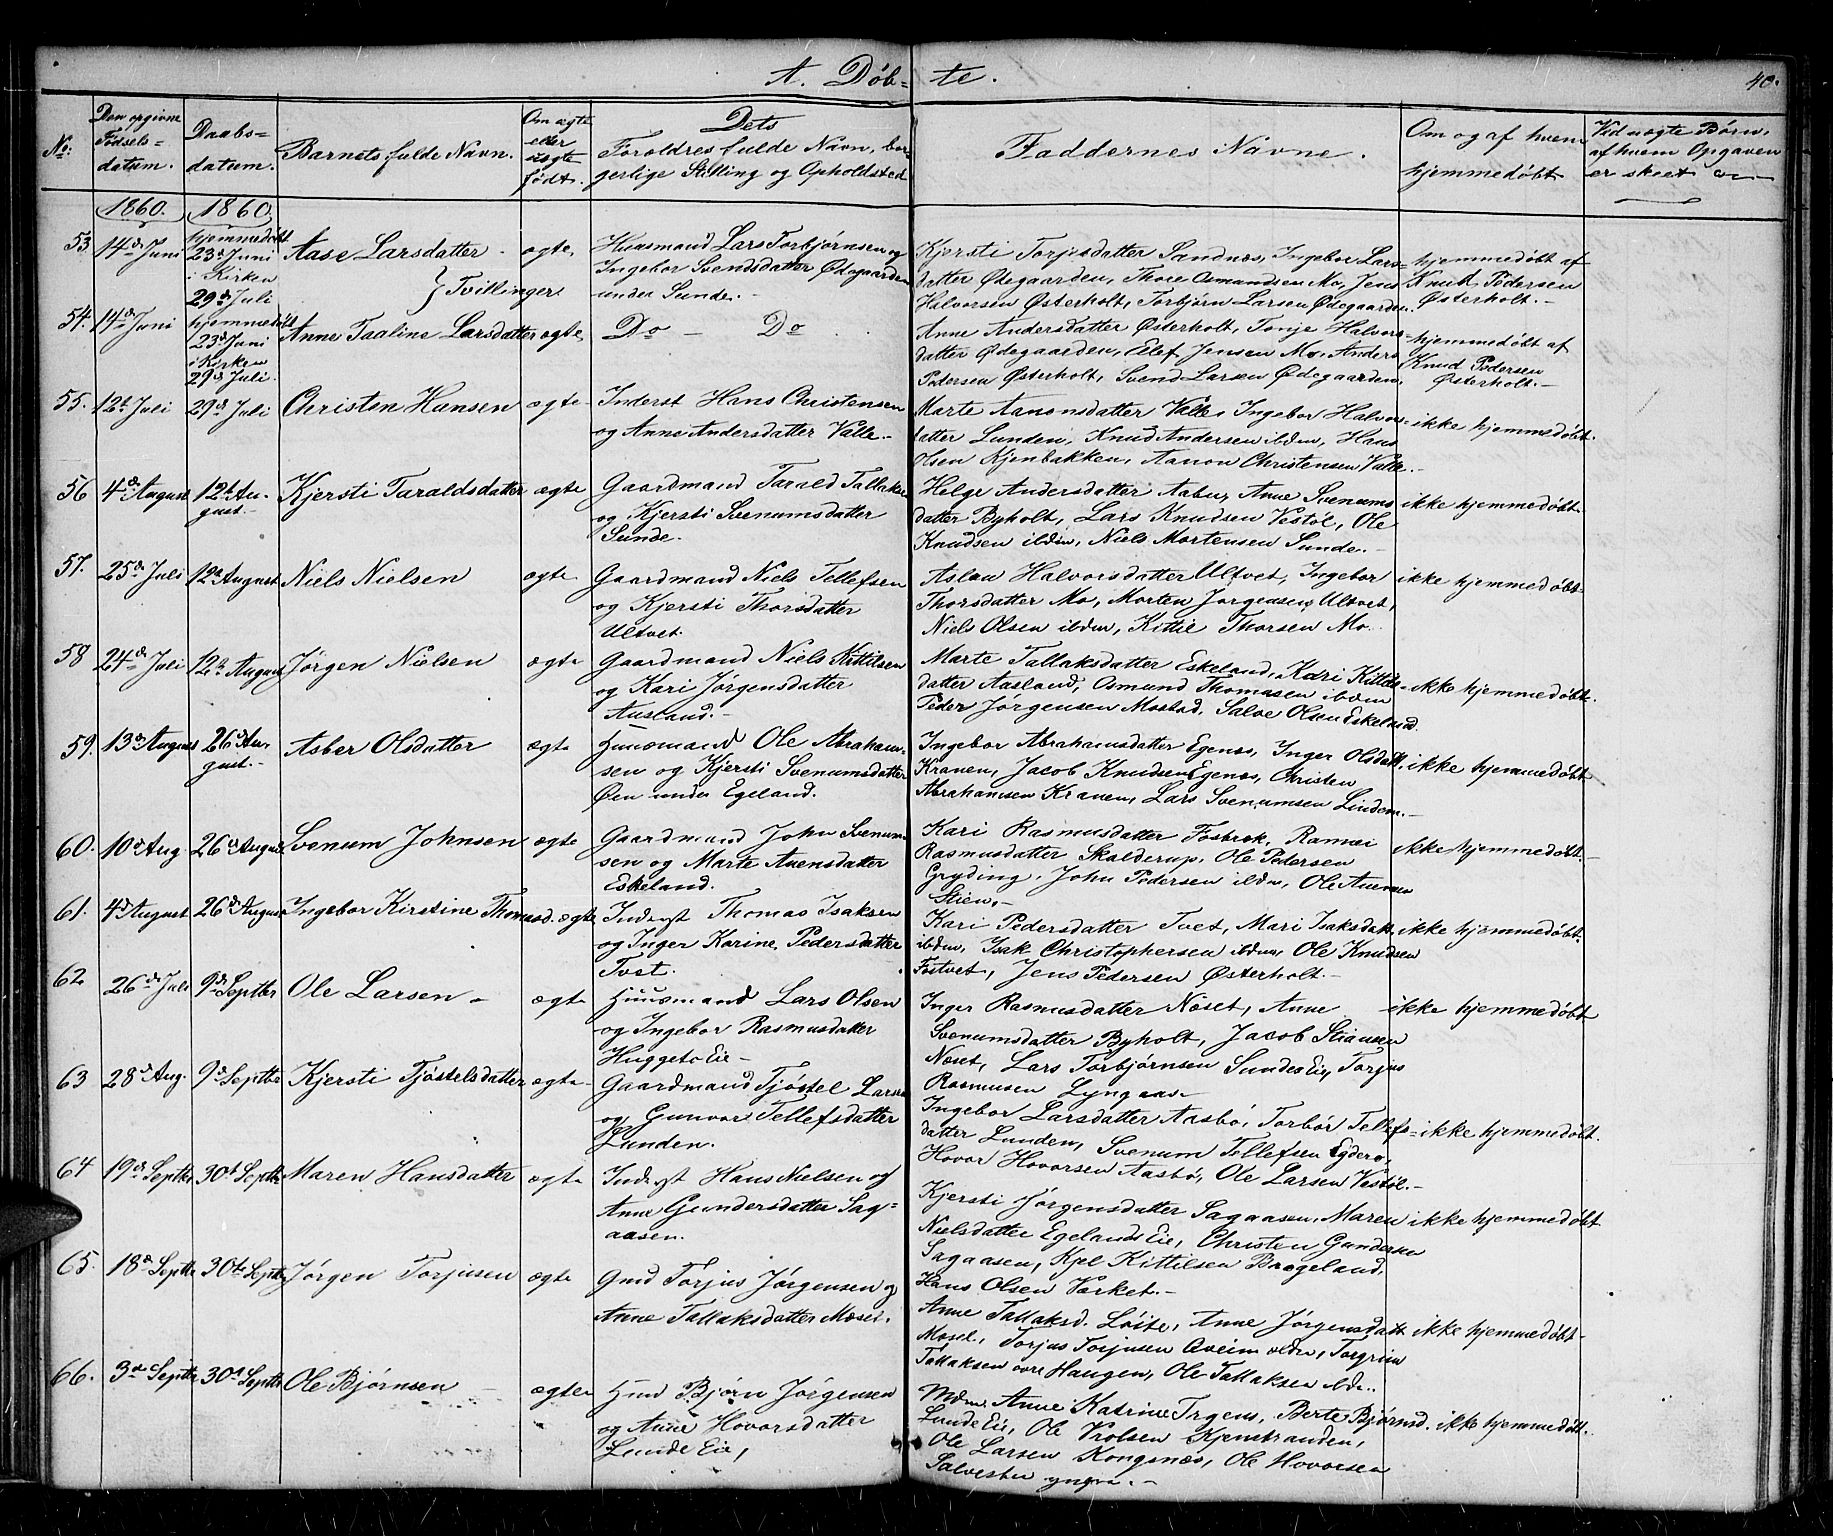 A. Døbte.
40.
No:
Den opgivne Fødselsdatum.
Daabsdatum.
Barnets fulde Navn.
Om ægte eller uægte født.
Dets Forældres fulde Navn, borgerlige Stilling og Opholdssted
Faddernes Navne.
Om og af hvem hjemmedøbt
Ved uægte Børn, af hvem Opgaven er skeet
1860. 1860.
53. 14de Juni hjemmedøbt 23de Juni i Kirken 29de Juli Aase Larsdatter - ægte
Huusmand Lars Torbjørnsen og
Ingebor Svendsdatter Ødegaarden
under Sunde. -
Kjersti Torjusdatter Sandnæs, Ingebor Lars-
datter Ødegaarden, Thore Osmundsen Mo, Jens
Halvorsen Østerholt, Torbjørn Larsen Ødegaarden.
hjemmedøbt af
Knud Pedersen
Østerholt. -
} Tvillinger
54. 14de Juni hjemmedøbt 23de Juni i Kirken 29de Juli. Anne Taaline Larsdatter ægte
Do - Do
Anne Andersdatter Østerholt, Tonje Halvors-
datter Ødegaarden, Elef Jensen Mo, Anders
Pedersen Østerholt, Svend Larsen Ødegaarden.
hjemmedøbt af
Knud Pedersen
Østerholt. -
55. 12te Juli 29de Juli Christen Hansen ægte
Inderst Hans Christensen
og Anne Andersdatter Valle. -
Marte Aanonsdatter Valle, Ingebor Halvors-
datter Lunden, Knud Andersen ibdm, Hans
Olsen Kjenbakken, Aanon Christensen Valle. -
ikke hjemmedøbt.
56 4de August 12te August. - Kjersti Taraldsdatter ægte
Gaardmand Tarald Tallaksen
og Kjersti Svenumsdatter
Sunde.
Helge Andersdatter Aabu, Anne Svenums-
datter Byholt, Lars Knudsen Vestøl, Ole
Knudsen ibdm, Niels Mortensen Sunde. -
ikke hjemmedøbt.
57. 25de Juli 12te August Niels Nielsen ægte
Gaardmand Niels Tellefsen
og Kjersti Thorsdatter
Ultvet.
Aslau Halvorsdatter Ultvet, Ingebor
Thorsdatter Mo, Morten Jørgensen Ultvet,
Niels Olsen ibdm, Kittil Thorsen Mo.
ikke hjemmedøbt.
58 24de Juli 12te August Jørgen Nielsen ægte
Gaardmand Niels Kittilsen
og Kari Jørgensdatter
Aasland. -
Marte Tallaksdatter Eskeland, Kari Kittils-
datter Aasland, Osmund Thomasen ibdm
Peder Jørgensen Mostad, Salve Olsen Eskeland.
ikke hjemmedøbt.
59. 13de August 26de August. - Asber Olsdatter ægte
Huusmand Ole Abraham-
sen og Kjersti Svenumsdatter
Øen under Egeland.
Ingebor Abrahamsdatter Egenæs, Inger Olsdatt.
Kranen, Jacob Knudsen Egenæs, Christen
Abrahamsen Kranen, Lars Svenumsen Linden. -
ikke hjemmedøbt
60. 10de Aug. 26de August Svenum Johnsen ægte
Gaardmand John Svenum-
sen og Marte Auensdatter
Eskeland.
Kari Rasmusdatter Fosbræk,
Rasmusdatter Skalderup, Ole Pedersen
Gryding, John Pedersen ibdm, Ole Auensen
Stien. -
ikke hjemmedøbt. -
61. 4de August 26de August Ingebor Kirstine Thomasd. ægte
Inderst Thomas Isaksen
og Inger Karine Pedersdatter
Tvet.
Kari Pedersdatter Tvet, Mari Isaksdatt.
ibdm, Isak Christophersen ibdm, Ole Knudsen
Fostvet, Jens Pedersen Østerholt. -
ikke hjemmedøbt.
62 26de Juli 9de Septbr Ole Larsen - ægte
Huusmand Lars Olsen
og Ingebor Rasmusdatter
Huggeto Eie -
Inger Rasmusdatter Næset, Anne
Svenumsdatter Byholt, Jacob Stiansen
Næset, Lars Torbjørnsen Sundes Eie, Torjus
Rasmusen Lyngaas -
ikke hjemmedøbt
63 28de Aug. 9de Septbr Kjersti Tjøstelsdatter ægte
Gaardmand Tjøstel Larsen
og Gunvor Tellefsdatter
Lunden.
Ingebor Larsdatter Aasbø, Torbor Tellefs-
datter Lunden, Svenum Tellefsen Egderø,
Hovor Hovorsen Aasbø, Ole Larsen Vestøl. -
ikke hjemmedøbt.
64 19de Septbr 30te Septbr Maren Hansdatter ægte
Inderst Hans Nielsen og
Anne Gundersdatter Sag-
aasen.
Kjersti Jørgensdatter Sagaasen, Maren
Nielsdatter Egelands Eie, Christen Gundersen
Sagaasen, Kjel Kittilsen Brægeland,
Hans Olsen Værket. -
ikke hjemmedøbt
65. 18de Septbr 30te Septbr Jørgen Torjusen ægte
Gmd Torjus Jørgensen og
Anne Tallaksdatter Mæsel.
Anne Tallaksd. Løite, Anne Jørgensdatt
Mæsel, Torjus Torjusen Aveim ældre, Torgrim
Tallaksen øvre Haugen, Ole Tallaksen ibdm.
ikke hjemmedøbt -
66. 3de Septbr 30te Septbr Ole Bjørnsen - ægte
Hmd Bjørn Jørgensen
og Anne Hovorsdatter
Lunde Eie,
Mdm. Anne Katrine Trgens, Berte Bjørnsd.
Lunde Eie, Ole Vrolsen Kjenstranden,
Ole Larsen Kongsnæs, Ole Hovorsen
Salvester yngre. -
ikke hjemmedøbt.